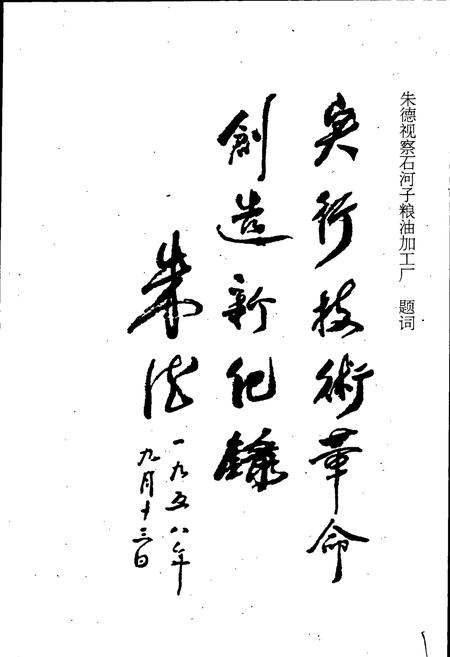 朱德视察石河子粮油加工厂 题词
实行技術革命
創造新纪録
朱德
一九五八年
九月十三日